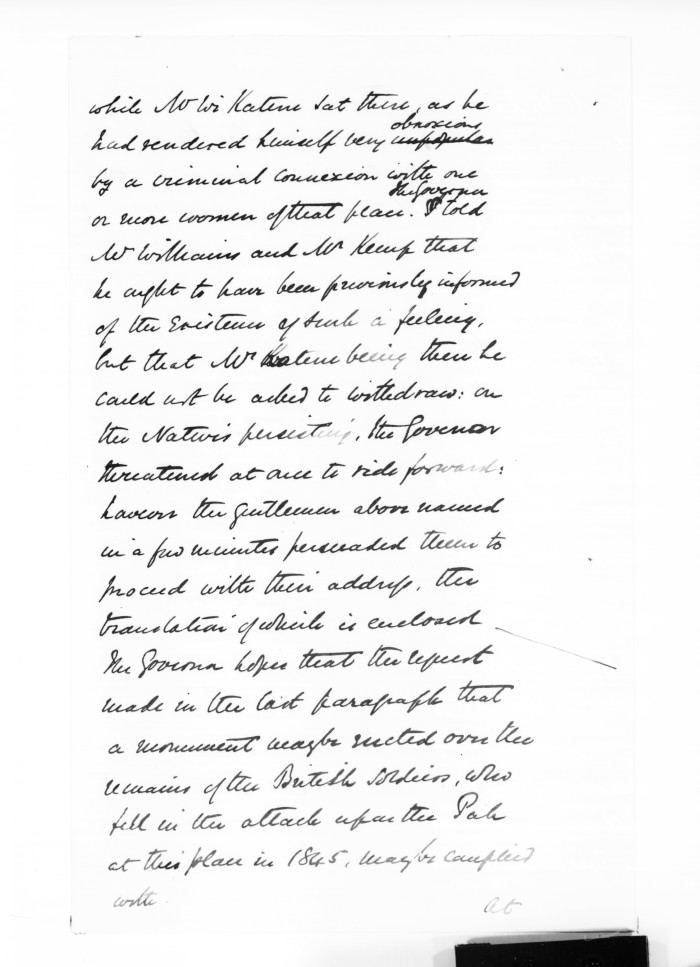 while Mr Wi Katene sat there, as he
obnoxious
had rendered himself very unpopular
by a criminal connexion with one
The Governor
or more women of that place. I told
Mr Williams and Mr Kemp that
he ought to have been previously informed
of the Existence of such a feeling,
but that Mr Katene being there he
could not be asked to withdraw: on
the Natives persisting, the Governor
threatened at once to ride forward:
however the gentlemen above named
in a few minutes persuaded them to
proceed with their address, the
translation of which is enclosed
The Governor hopes that the request
made in the last paragraph that
a monument may be erected over the
remains of the British Soldiers, who
fell in the attack upon the Pah
at this place in 1845, may be complied
with.
At